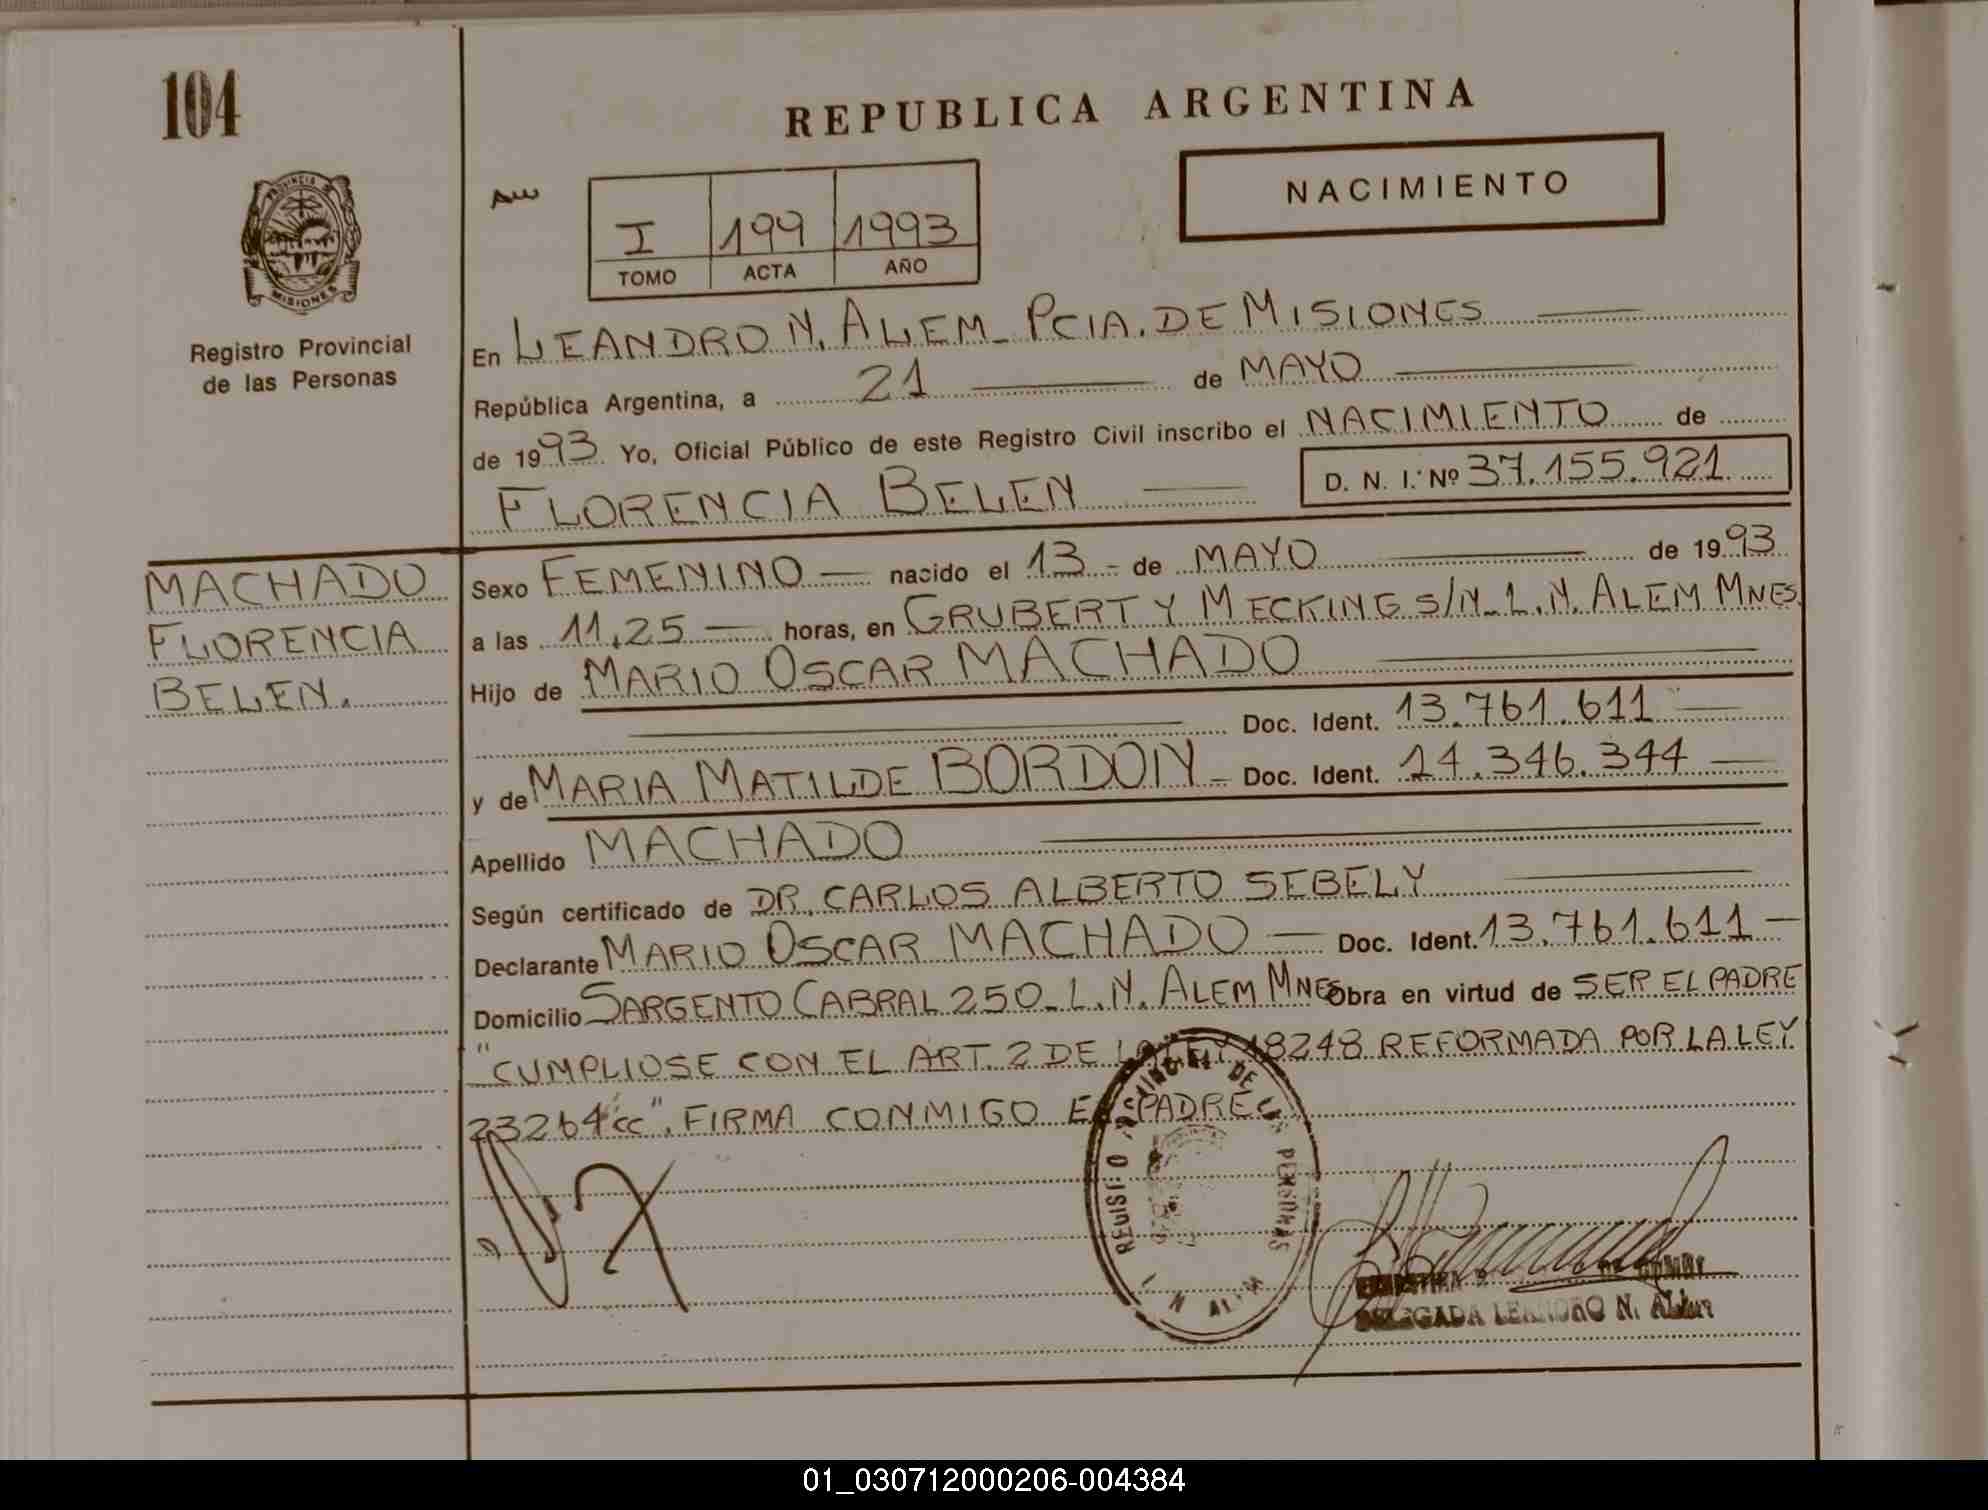 104
REPUBLICA ARGENTINA
NACIMIENTO
PROVINCIA DE
MISIONES
Registro Provincial
de las Personas
I 199 1993
TOMO ACTA AÑO
En LEANDRO N. ALEM_ PCIA. DE MISIONES
República Argentina, a 21 de MAYO
de 1993 Yo, Oficial Público de este Registro Civil inscribo el NACIMIENTO de
FLORENCIA BELEN D. N. I. Nº 37.155.921
MACHADO
FLORENCIA
BELEN.
Sexo FEMENINO — nacido el 13 - de MAYO de 1993
a las 11,25 — horas, en GRUBERT Y MECKING S/N_ L.N. ALEM MNES.
Hijo de MARIO OSCAR MACHADO
Doc. Ident. 13.761.611 —
y de MARIA MATILDE BORDON — Doc. Ident. 14.346.344 —
Apellido MACHADO
Según certificado de DR. CARLOS ALBERTO SEBELY
Declarante MARIO OSCAR MACHADO — Doc. Ident. 13.761.611 —
Domicilio SARGENTO CABRAL 250_ L.N. ALEM MNES Obra en virtud de SER EL PADRE
"CUMPLIOSE CON EL ART. 2 DE LA LEY 18248 REFORMADA POR LA LEY
23264 cc". FIRMA CONMIGO EL PADRE
REGISTRO PROVINCIAL DE LAS PERSONAS
L N ALEM
DELEGADA LEANDRO N. ALEM
01_030712000206-004384